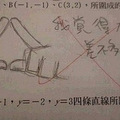 、B(-1,-1)、C(3,2),所圍成的
我覺得
差不多
1、y=-2、y=3四條直線所圍